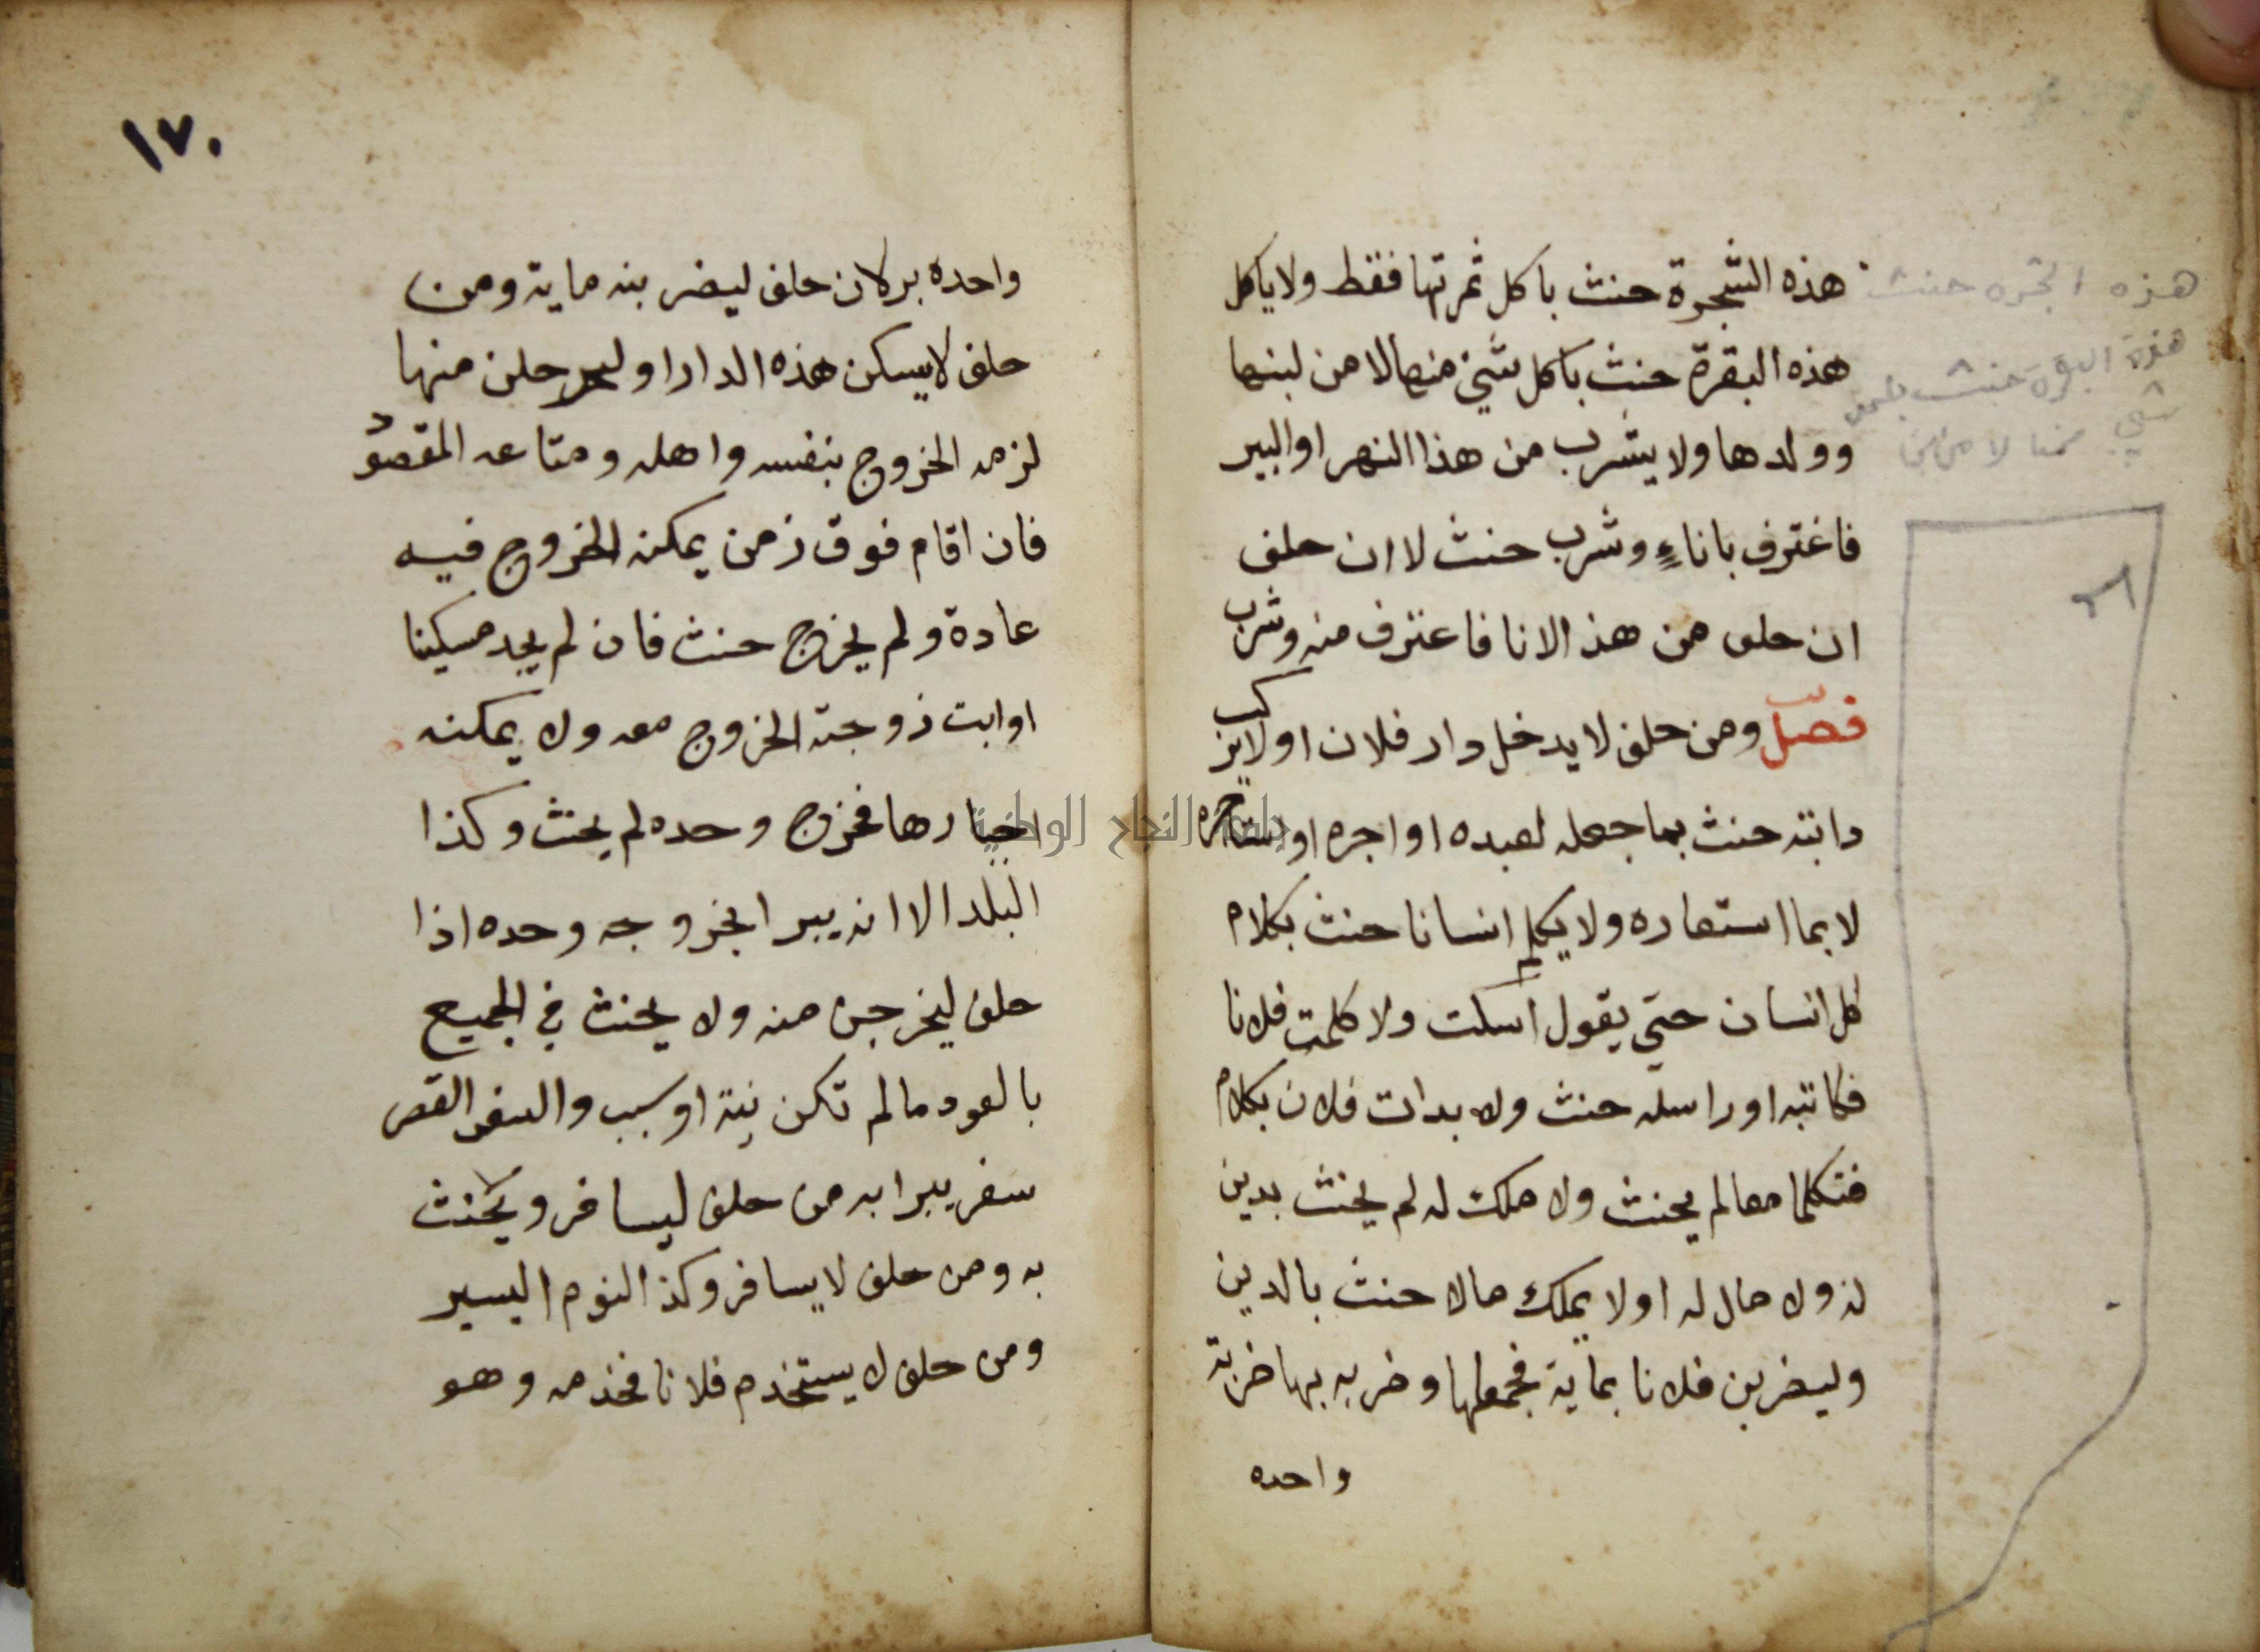 هذه الشجرة حنث باكل ثمرتها فقط ولا ياكل
هذه البقرة حنث باكل شيئ منها لا من لبنها
وولدها ولا يشرب من هذا النهر او البير
فاغترف باناءٍ وشرب حنث لا ان حلف
ان حلف من هذ الانا فاغترف منه وشرب
فصل ومن حلف لا يدخل دار فلان او لا يركب
دابته حنث بما جعله لعبده او اجره او استاجره
لا بما استعاره ولا يكلم انسانا حنث بكلام
كل انسان حتي يقول اسكت ولا كلمت فلانا
فكاتبه او راسله حنث ولا بدات فلان بكلام
فتكلما معا لم يحنث ولا ملك له لم يحنث بدين
له ولا مال له او لا يملك مالا حنث بالدين
وليضربن فلانا بماية فجمعها وضربه بها ضربة
واحده
هذه
حنث
هذه البقرة حنث
شيي منها لا من
٢٦
١٧٠
واحده بر لا ان حلف ليضربنه ماية ومن
حلف لا يسكن هذه الدار او ليرحلن منها
لزمه الخروج بنفسه واهله ومتاعه المقصود
فان اقام فوق زمن يمكنه الخروج فيه
عادة ولم يخرج حنث فان لم يجد مسكينا
او ابت زوجته الخروج معه ولا يمكنه
اجبارها فخرج وحده لم يحنث وكذا
البلد الا انه يبر ابخروجه وحده اذا
حلف ليخرجن منه ولا يحنث في الجميع
بالعود مالم تكن نية او سبب والسفر القصر
سفر يبرا به من حلف ليسافر ويحنث
به ومن حلف لا يسافر وكذ النوم اليسير
ومن حلف لا يستخدم فلانا فخدمه وهو
جامعة النجاح الوطنية